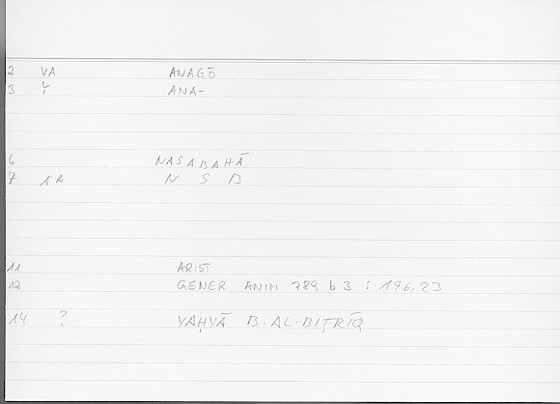 2 VA ANAGŌ
3 Ῐ ANA-
6 NASABAHĀ
7 AA N S B
11 ARIST
12 GENER ANIM 789 b 3 : 196,23
14 ? YAḤYĀ B. AL-BIṬRĪQ